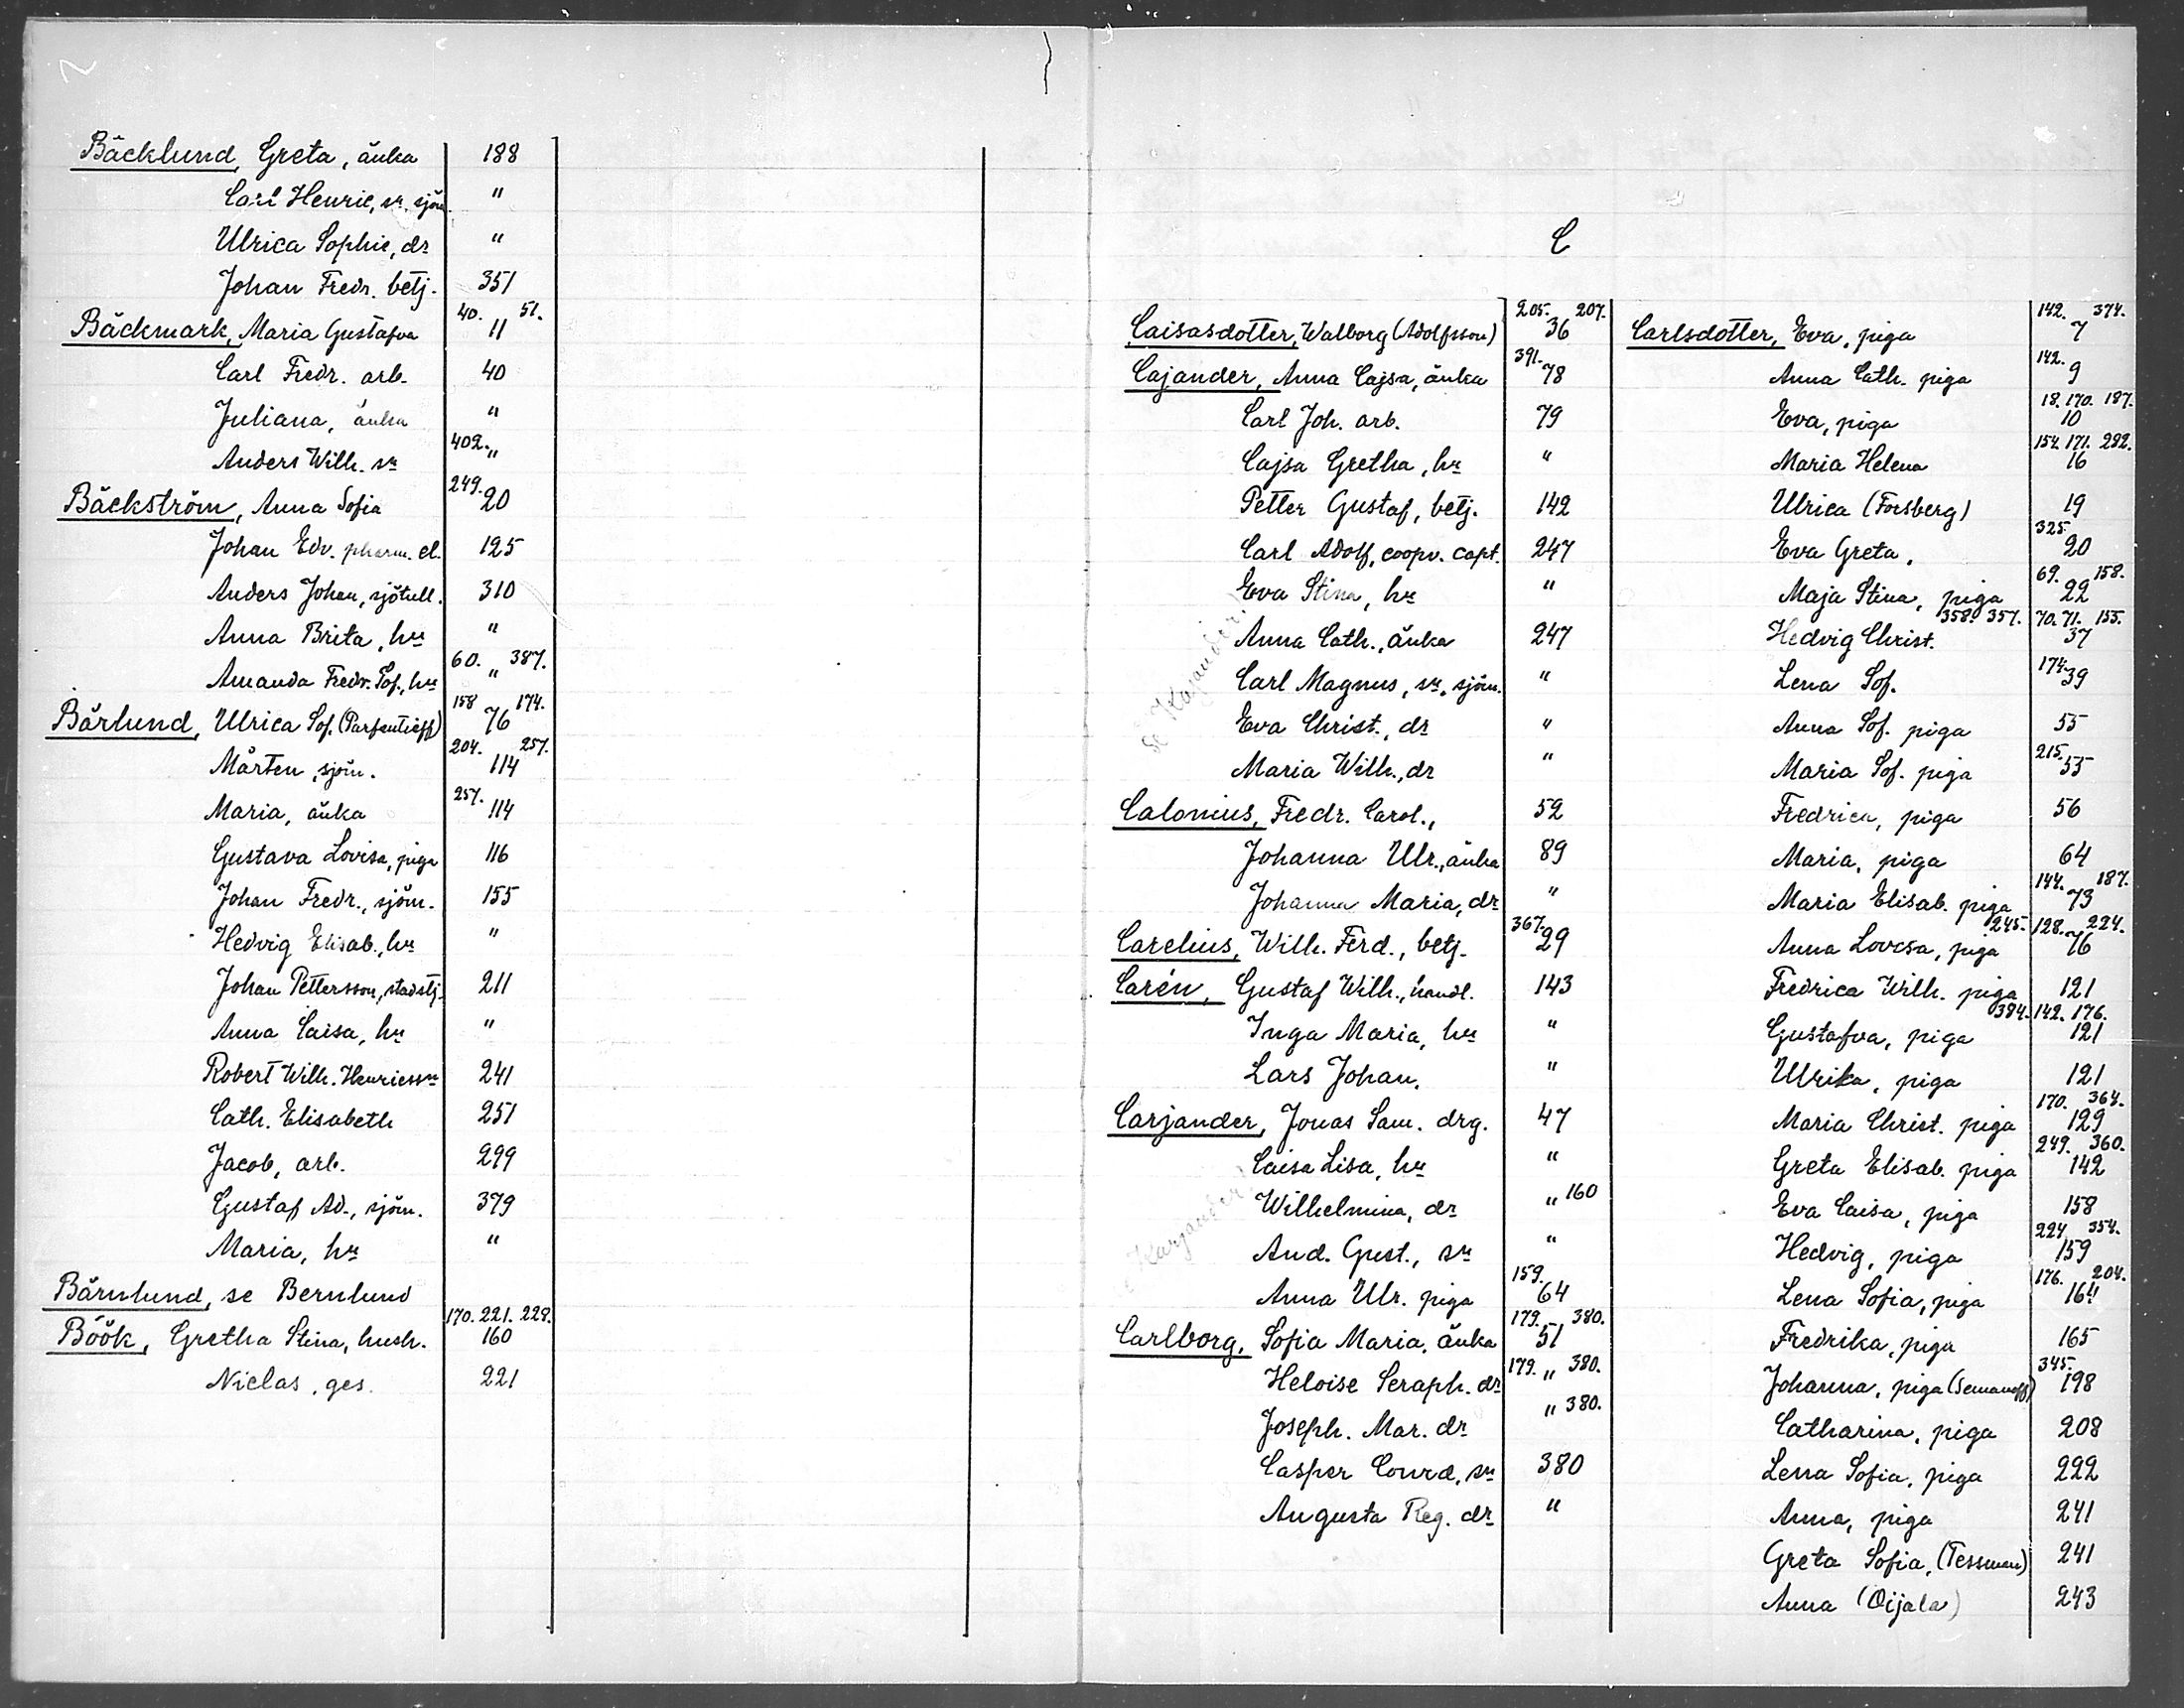 Bäcklund, Greta, änka 188
Carl Henric, sn. sjöm. "
Ulrica Sophie, dr "
Johan Fredr. betj. 351
Bäckmark, Maria Gustafva 40. 11 51.
Carl Fredr. arb. 40
Juliana, änka "
Anders Wilh. sn 402. "
Bäckström, Anna Sofia 249. 20
Johan Edv. pharm. el. 125
Anders Johan, sjötull. 310
Anna Brita, hu "
Amanda Fredr. Sof., hu 60. " 387.
Bärlund, Ulrica Sof. (Parfentieff) 158 76 174.
Mårten, sjöm. 204. 114 257.
Maria, änka 257. 114
Gustava Lovisa, piga 116
Johan Fredr., sjöm. 155
Hedvig Elisab., hu "
Johan Pettersson, stadstj. 211
Anna Caisa, hu "
Robert Wilh. Henricssn 241
Cath. Elisabeth 251
Jacob, arb. 299
Gustaf Ad., sjöm. 379
Maria, hu "
Bärnlund, se Bernlund
Böök, Gretha Stina, hush. 170. 221. 228. 160
Niclas, ges. 221
C
Caisasdotter, Walborg (Adolfsson) 205. 36 207.
Cajander, Anna Cajsa, änka 391. 78
Carl Joh. arb. 79
Cajsa Gretha, hu "
Petter Gustaf, betj. 142
Carl Adolf, coopv. capt. 247
Eva Stina, hu "
Anna Cath., änka 247
Carl Magnus, sn. sjöm. "
Eva Christ., dr "
Maria Wilh., dr "
se Kajander
Calonius, Fredr. Carol., 52
Johanna Ulr., änka 89
Johanna Maria, dr "
Carelius, Wilh. Ferd., betj. 367. 29
Carén, Gustaf Wilh., handl. 143
Inga Maria, hu "
Lars Johan, "
Carjander, Jonas Sam. drg. 47
Caisa Lisa, hu "
Wilhelmina, dr " 160
And. Gust., sn "
Anna Ulr. piga 159. 64
Karjander
Carlborg, Sofia Maria, änka 179. 51 380.
Heloise Seraph. dr 179. " 380.
Joseph. Mar. dr " 380.
Casper Conrd, sn 380
Augusta Reg. dr "
Carlsdotter, Eva, piga 142. 7 374.
Anna Cath. piga 142. 9
Eva, piga 18. 170. 187. 10
Maria Helena 154. 171. 282. 16
Ulrica (Forsberg) 19
Eva Greta, 325. 20
Maja Stina, piga 69. 22 158.
Hedvig Christ. 358. 357. 70. 71. 155. 37
Lena Sof. 174. 39
Anna Sof. piga 55
Maria Sof. piga 215. 55
Fredrica, piga 56
Maria, piga 64
Maria Elisab. piga 144. 73 187.
Anna Lovisa, piga 245. 128. 224. 76
Fredrica Wilh. piga 121
Gustafva, piga 384. 142. 176. 121
Ulrika, piga 121
Maria Christ. piga 170. 364. 129
Greta Elisab. piga 249. 360. 142
Eva Caisa, piga 158
Hedvig, piga 224 354. 159
Lena Sofia, piga 176. 204. 164
Fredrika, piga 165
Johanna, piga (Semanoff) 345. 198
Catharina, piga 208
Lena Sofia, piga 222
Anna, piga 241
Greta Sofia, (Tessman) 241
Anna (Oijala) 243